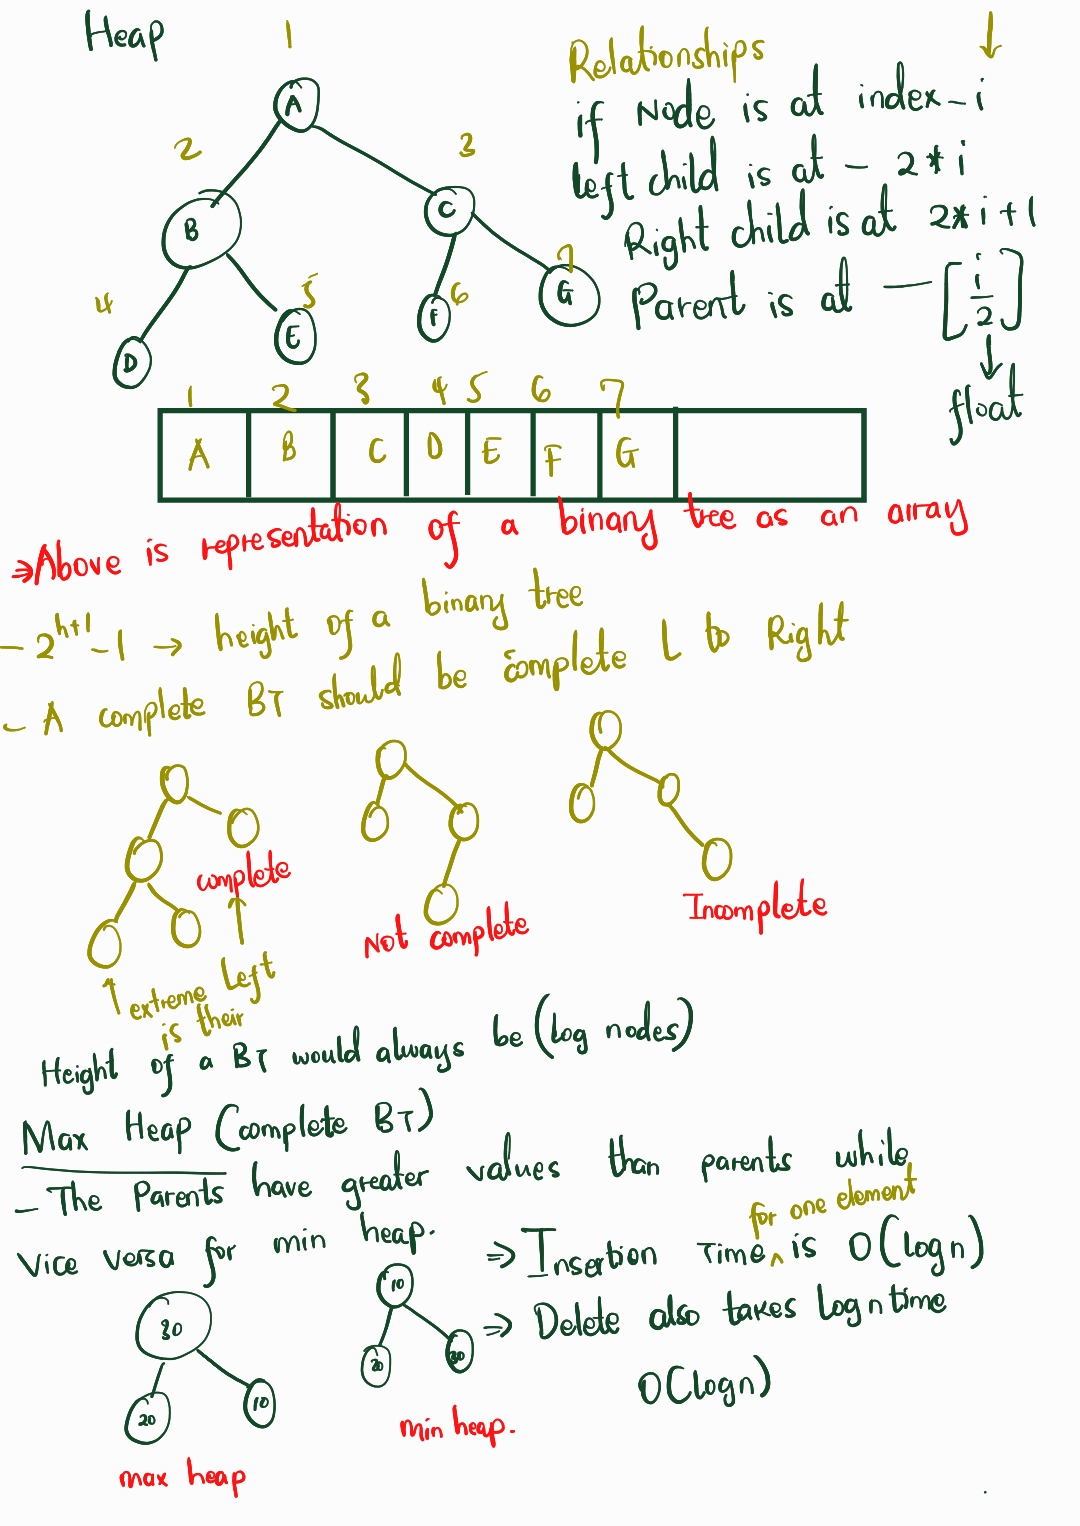 Heap
1
A
2
3
B
C
4
5
6
7
D
E
F
G
Relationships
if Node is at index - i
left child is at - 2 * i
Right child is at 2* i + 1
Parent is at - [i/2]
float
1 2 3 4 5 6 7
A B C D E F G
⇒ Above is representation of a binary tree as an array
- 2^h+1 - 1 → height of a binary tree
- A complete BT should be complete L to Right
complete
Not complete
Incomplete
extreme Left
is their
Height of a BT would always be (log nodes)
Max Heap (complete BT)
- The Parents have greater values than parents while
Vice versa for min heap.
for one element
⇒ Insertion Time ^ is O(logn)
⇒ Delete also takes logn time
O(logn)
30
20
10
max heap
10
20
30
min heap.